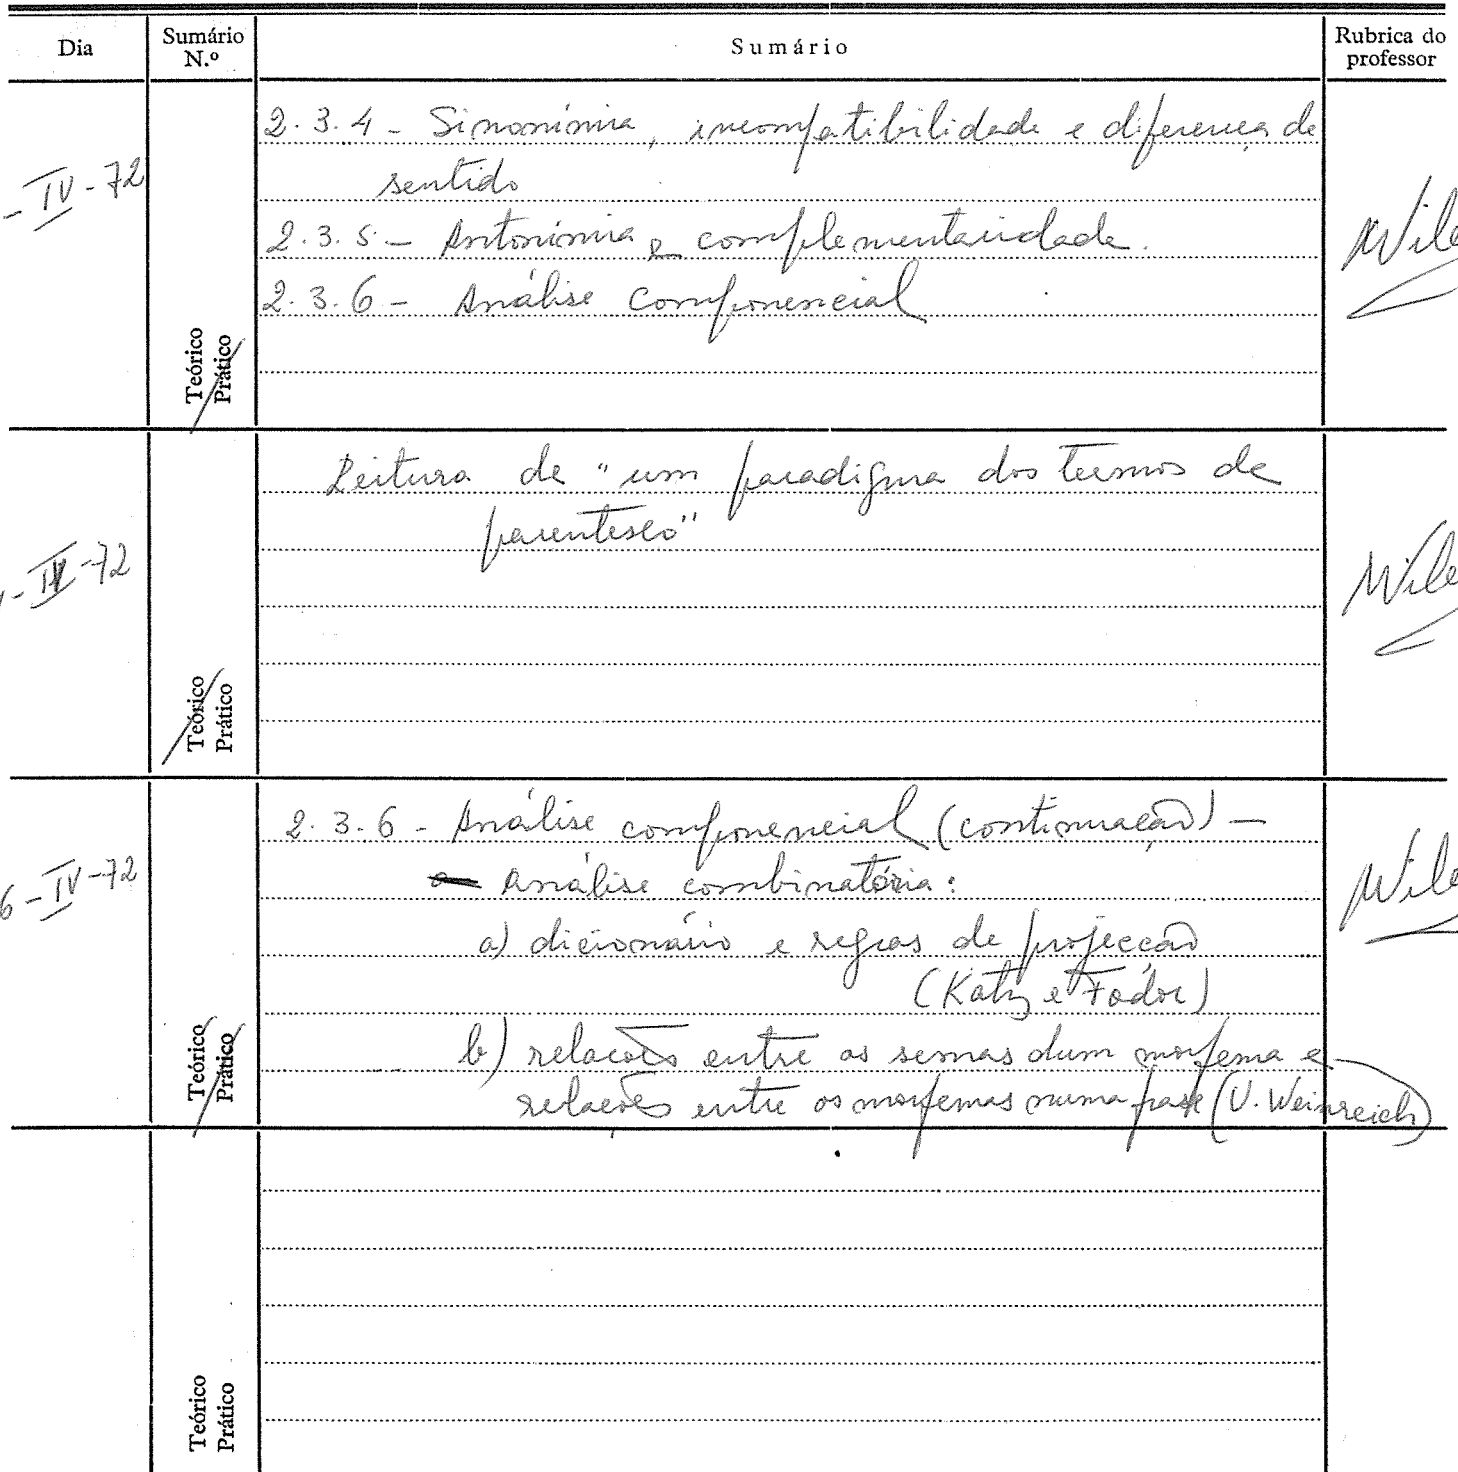 Dia
Sumário N.º
Sumário
Rubrica do professor
2.3.4 - Sinonímia, incompatibilidade e diferença de
sentido
- IV - 72
2.3.5 - Antonímia e complementaridade.
2.3.6 - Análise componencial
Teórico
Prático
Leitura de "um paradigma dos termos de
parentesco"
- IV - 72
Teórico
Prático
2.3.6 - Análise componencial (continuação) -
6 - IV - 72
Análise combinatória:
a) dicionário e regras de projecção
(Katz e Fodor)
b) relações entre os semas dum morfema e
relações entre os morfemas numa frase (U. Weinreich)
Teórico
Prático
Teórico
Prático